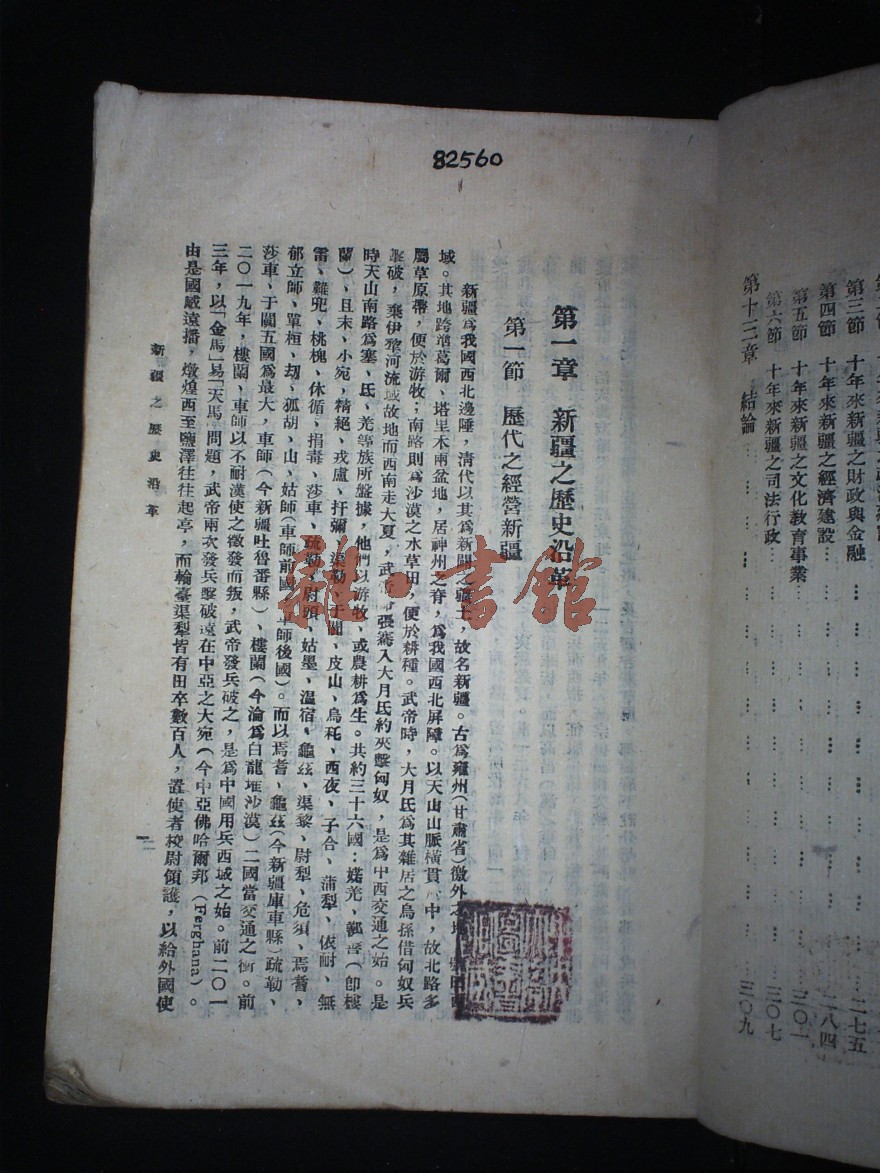 82560
第三節　十年來新疆之財政與金融……二七五
第四節　十年來新疆之經濟建設……二八四
第五節　十年來新疆之文化教育事業……三〇一
第六節　十年來新疆之司法行政……三〇七
第十三章　結論……三〇九
第一章　新疆之歷史沿革
第一節　歷代之經營新疆
新疆為我國西北邊陲，清代以其為新闢之疆土，故名新疆。古為雍州(甘肅省)徼外之地，
域。其地跨準葛爾、塔里木兩盆地，居神州之脊，為我國西北屏障。以天山山脈橫貫其中，故北路多
屬草原帶，便於游牧；南路則為沙漠之水草田，便於耕種。武帝時，大月氏為其雜居之烏孫借匈奴兵
擊破，棄伊犂河流域故地而西南走大夏，武帝 張騫入大月氏約夾擊匈奴，是為中西交通之始。是
時天山南路為塞、氐、羌等族所盤據，他們以游牧、或農耕為生。共約三十六國：婼羌、鄯善(卽樓
蘭)、且末、小宛，精絕、戎盧、扜彌、渠勒、于闐、皮山、烏秅、西夜、子合、蒲犁、依耐、無
雷、難兜、桃槐、休循、捐毒、莎車、疏勒、尉頭、姑墨、溫宿、龜茲、渠黎、尉犁、危須、焉耆、
郁立師、單桓、刧、狐胡、山、姑師(車師前國、車師後國)。而以焉耆、龜茲(今新疆庫車縣)疏勒、
莎車、于闐五國為最大，車師(今新疆吐魯番縣)、樓蘭(今淪為白龍堆沙漠)二國當交通之衝。前
二〇一九年，樓蘭、車師以不耐漢使之徵發而叛，武帝發兵破之，是為中國用兵西域之始。前二〇一
三年，以「金馬」易「天馬」問題，武帝兩次發兵擊破遠在中亞之大宛(今中亞佛哈爾邦(Ferghana)。
由是國威遠播，燉煌西至鹽澤往往起亭，而輪臺渠犁皆有田卒數百人，置使者校尉領護，以給外國使
新疆之歷史沿革
一
雜·書館